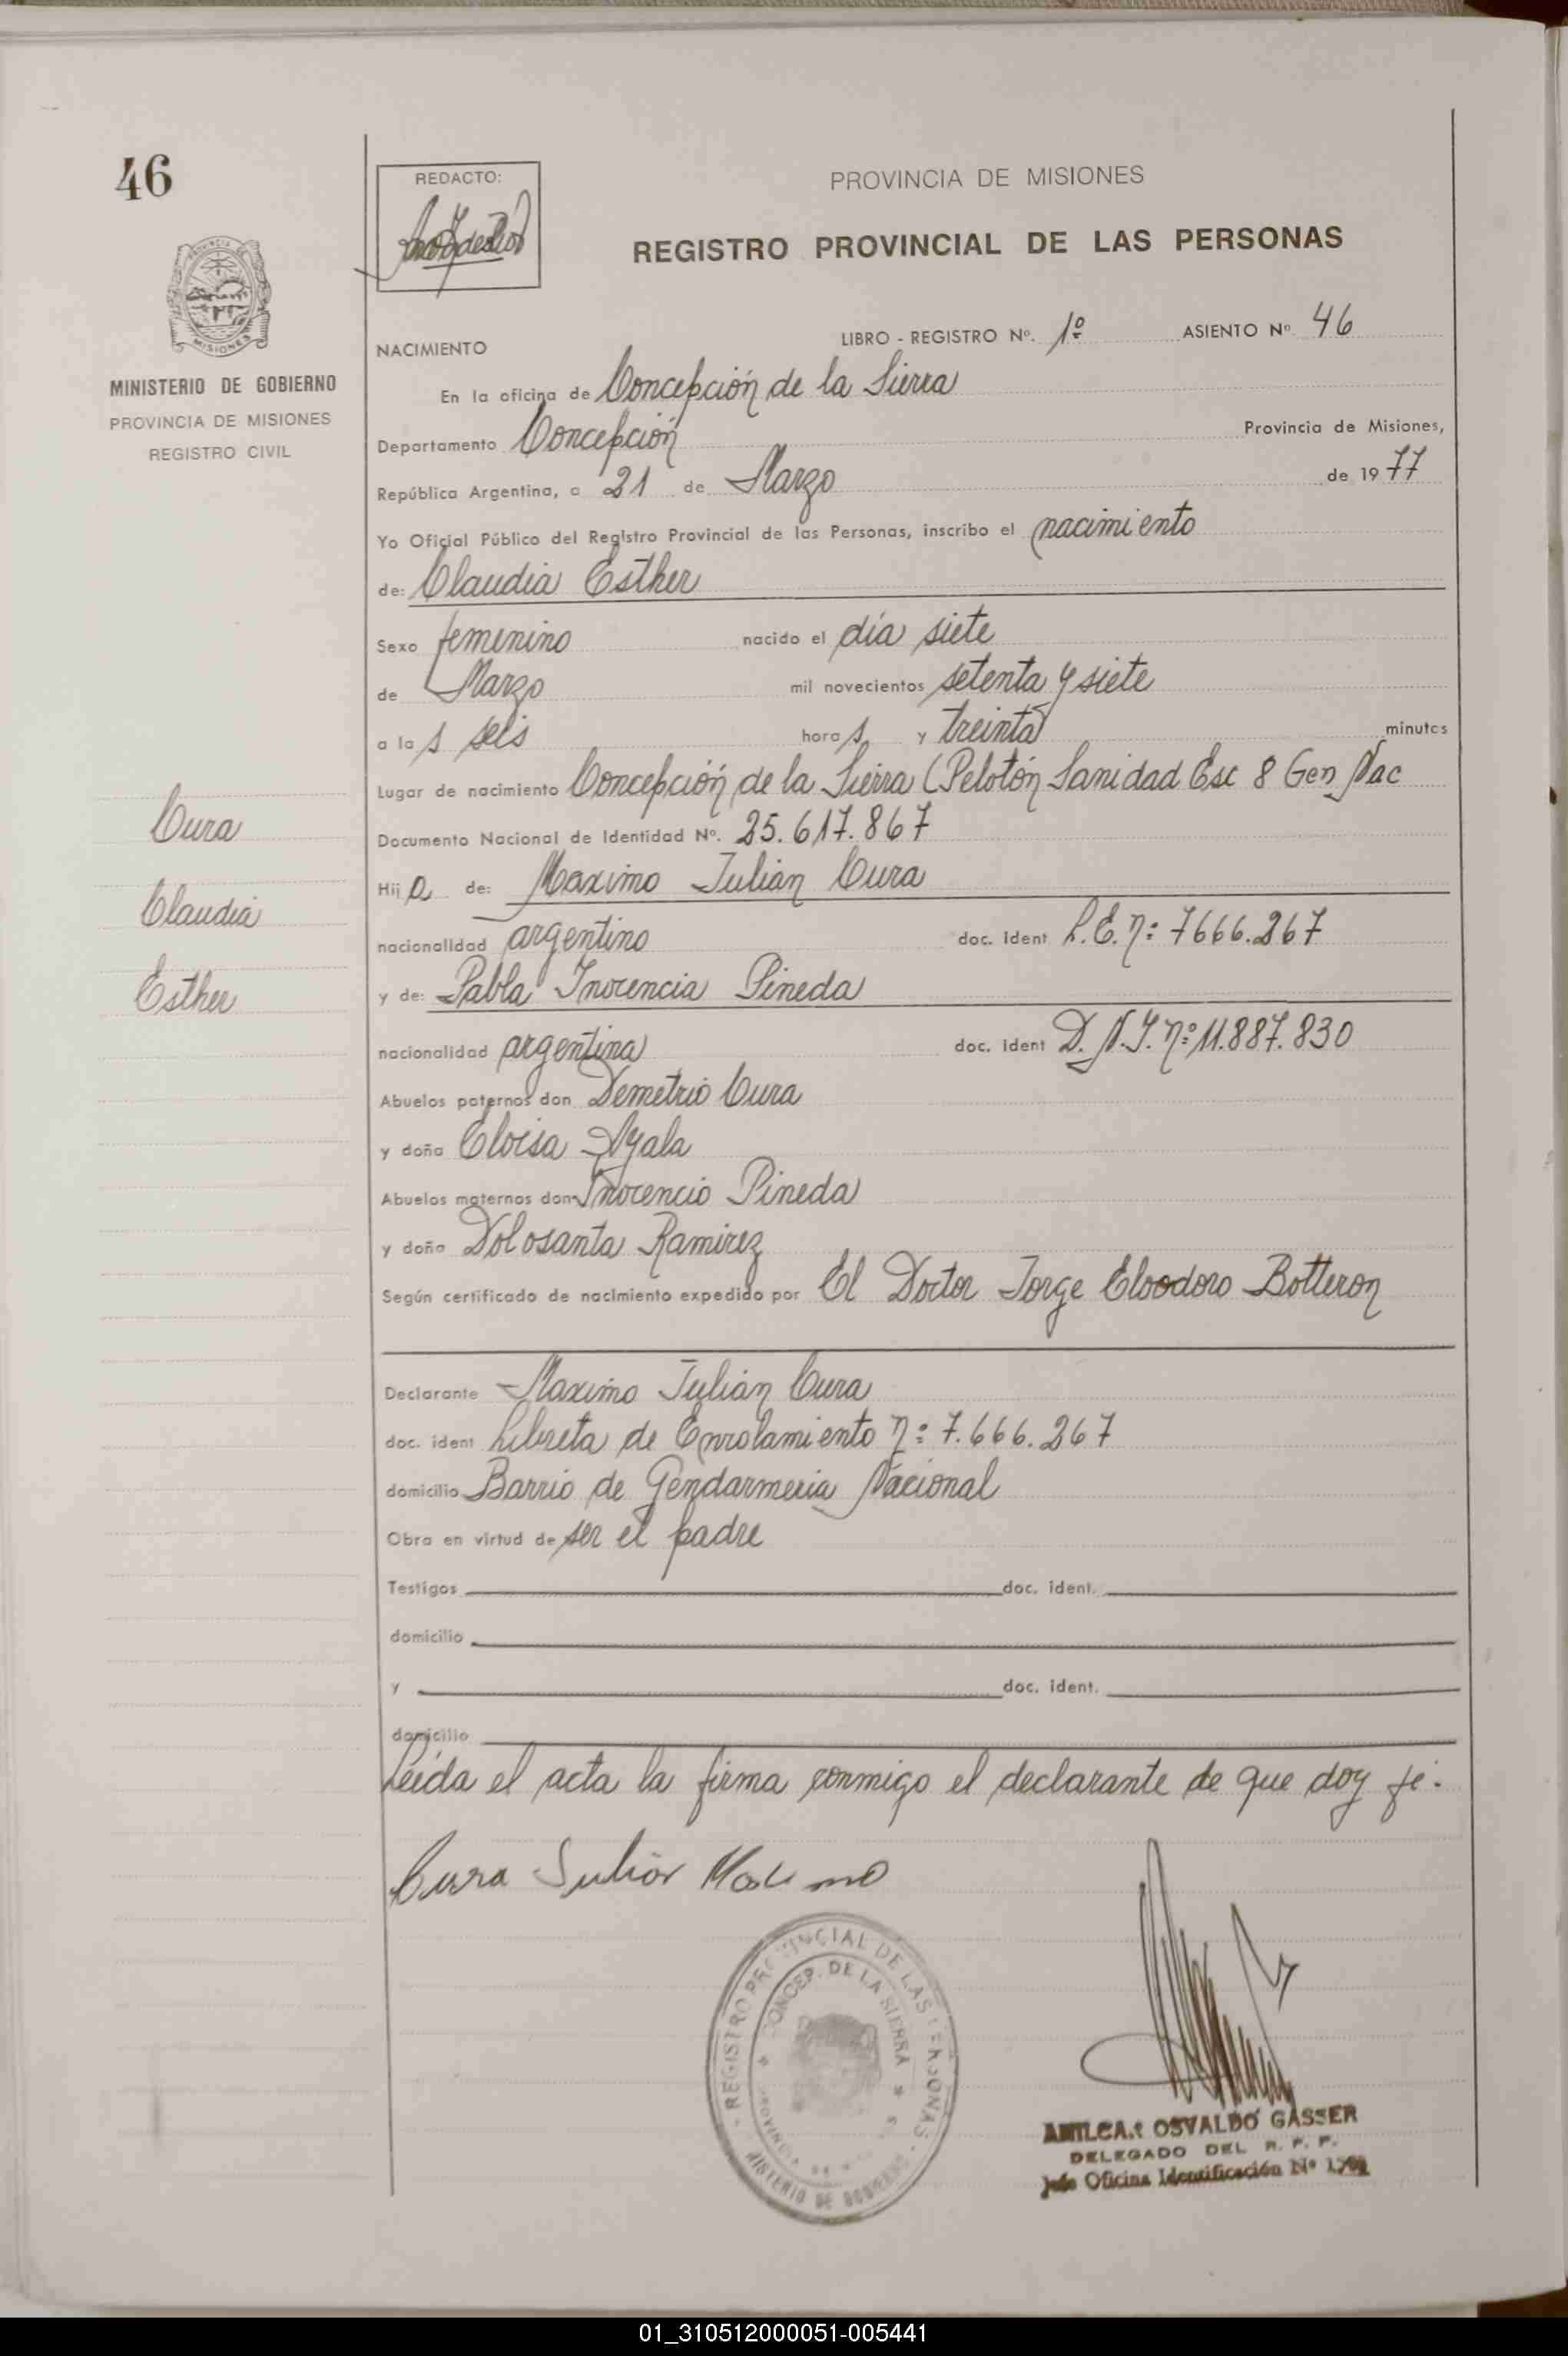 46
REDACTO:
PROVINCIA DE MISIONES
REGISTRO PROVINCIAL DE LAS PERSONAS
MISIONES
MINISTERIO DE GOBIERNO
PROVINCIA DE MISIONES
REGISTRO CIVIL
NACIMIENTO
LIBRO - REGISTRO Nº. 1º ASIENTO Nº 46
En la oficina de Concepción de la Sierra
Departamento Concepción Provincia de Misiones,
República Argentina, a 21 de Marzo de 1977
Yo Oficial Público del Registro Provincial de las Personas, inscribo el nacimiento
de: Claudia Esther
Sexo femenino nacido el día siete
de Marzo mil novecientos setenta y siete
a las seis horas y treinta minutos
Lugar de nacimiento Concepción de la Sierra (Pelotón Sanidad Esc 8 Gen Nac
Documento Nacional de Identidad Nº. 25.617.867
Hija de: Maximo Julián Cura
nacionalidad argentino doc. ident L.E. nº 7666.267
y de: Pabla Inocencia Pineda
nacionalidad argentina doc. ident D.N.I. nº 11.887.830
Abuelos paternos don Demetrio Cura
y doña Eloisa Ayala
Abuelos maternos don Inocencio Pineda
y doña Dolosanta Ramirez
Según certificado de nacimiento expedido por El Doctor Jorge Eloodoro Botteron
Cura
Claudia
Esther
Declarante Maximo Julián Cura
doc. ident Libreta de Enrolamiento nº 7.666.267
domicilio Barrio de Gendarmeria Nacional
Obra en virtud de ser el padre
Testigos doc. ident.
domicilio
y doc. ident.
domicilio
Leída el acta la firma conmigo el declarante de que doy fé.
Cura Julián Maximo
REGISTRO PROVINCIAL DE LAS PERSONAS
CONCEP. DE LA SIERRA
MINISTERIO DE GOBIERNO
AMILCAR OSVALDO GASSER
DELEGADO DEL R. P. P.
Jefe Oficina Identificación Nº
01_310512000051-005441